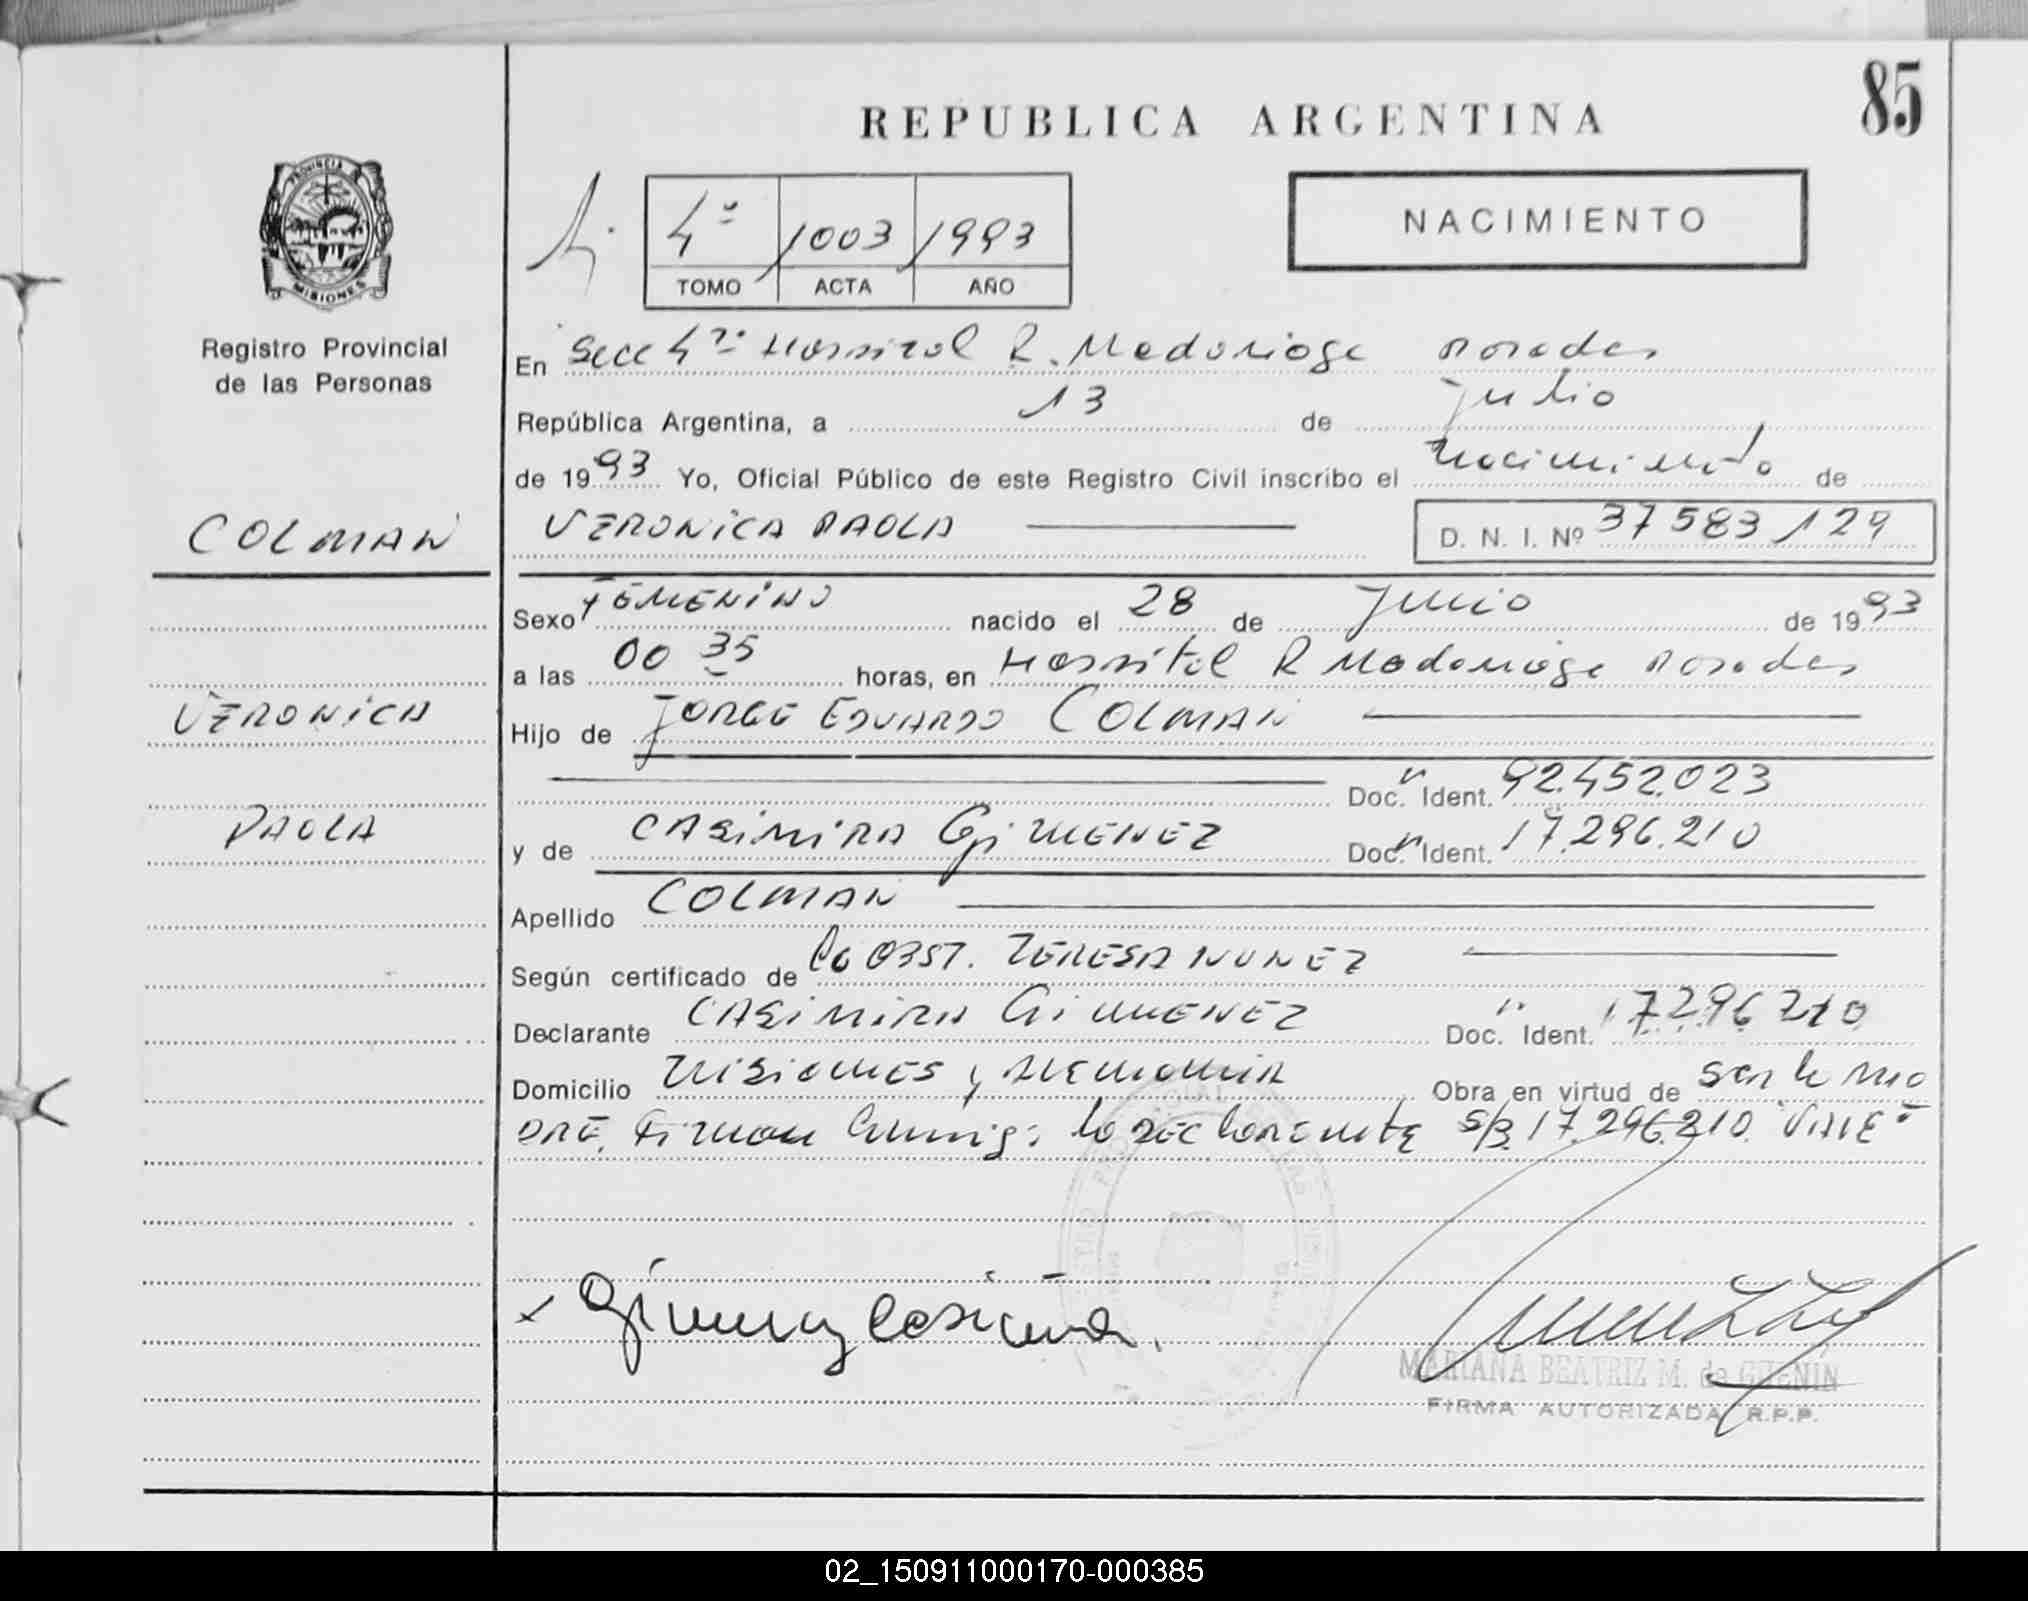 85
REPUBLICA ARGENTINA
PROVINCIA
MISIONES
Registro Provincial
de las Personas
4º 1003 1993
TOMO ACTA AÑO
NACIMIENTO
En Secc 4ª Hospital R. Madariaga Posadas
República Argentina, a 13 de julio
de 1993 Yo, Oficial Público de este Registro Civil inscribo el nacimiento de
COLMAN
VERONICA PAOLA D. N. I. Nº 37583129
Sexo FEMENINO nacido el 28 de Junio de 1993
a las 00 35 horas, en Hospital R Madariaga Posadas
VERONICA
Hijo de JORGE EDUARDO COLMAN
Doc. Ident. 92.452.023
PAOLA
y de CASIMIRA GIMENEZ Doc. Ident. 17.296.210
Apellido COLMAN
Según certificado de la OBST. TERESA NUNEZ
Declarante CASIMIRA GIMENEZ Doc. Ident. 17296210
Domicilio MISIONES y ALEMANIA Obra en virtud de ser la MA
DRE, Firman conmigo la DECLARANTE 17.296.210 VALE
Gimenez Casimira.
MARIANA BEATRIZ M. de GUENIN
FIRMA AUTORIZADA R.P.P.
02_150911000170-000385